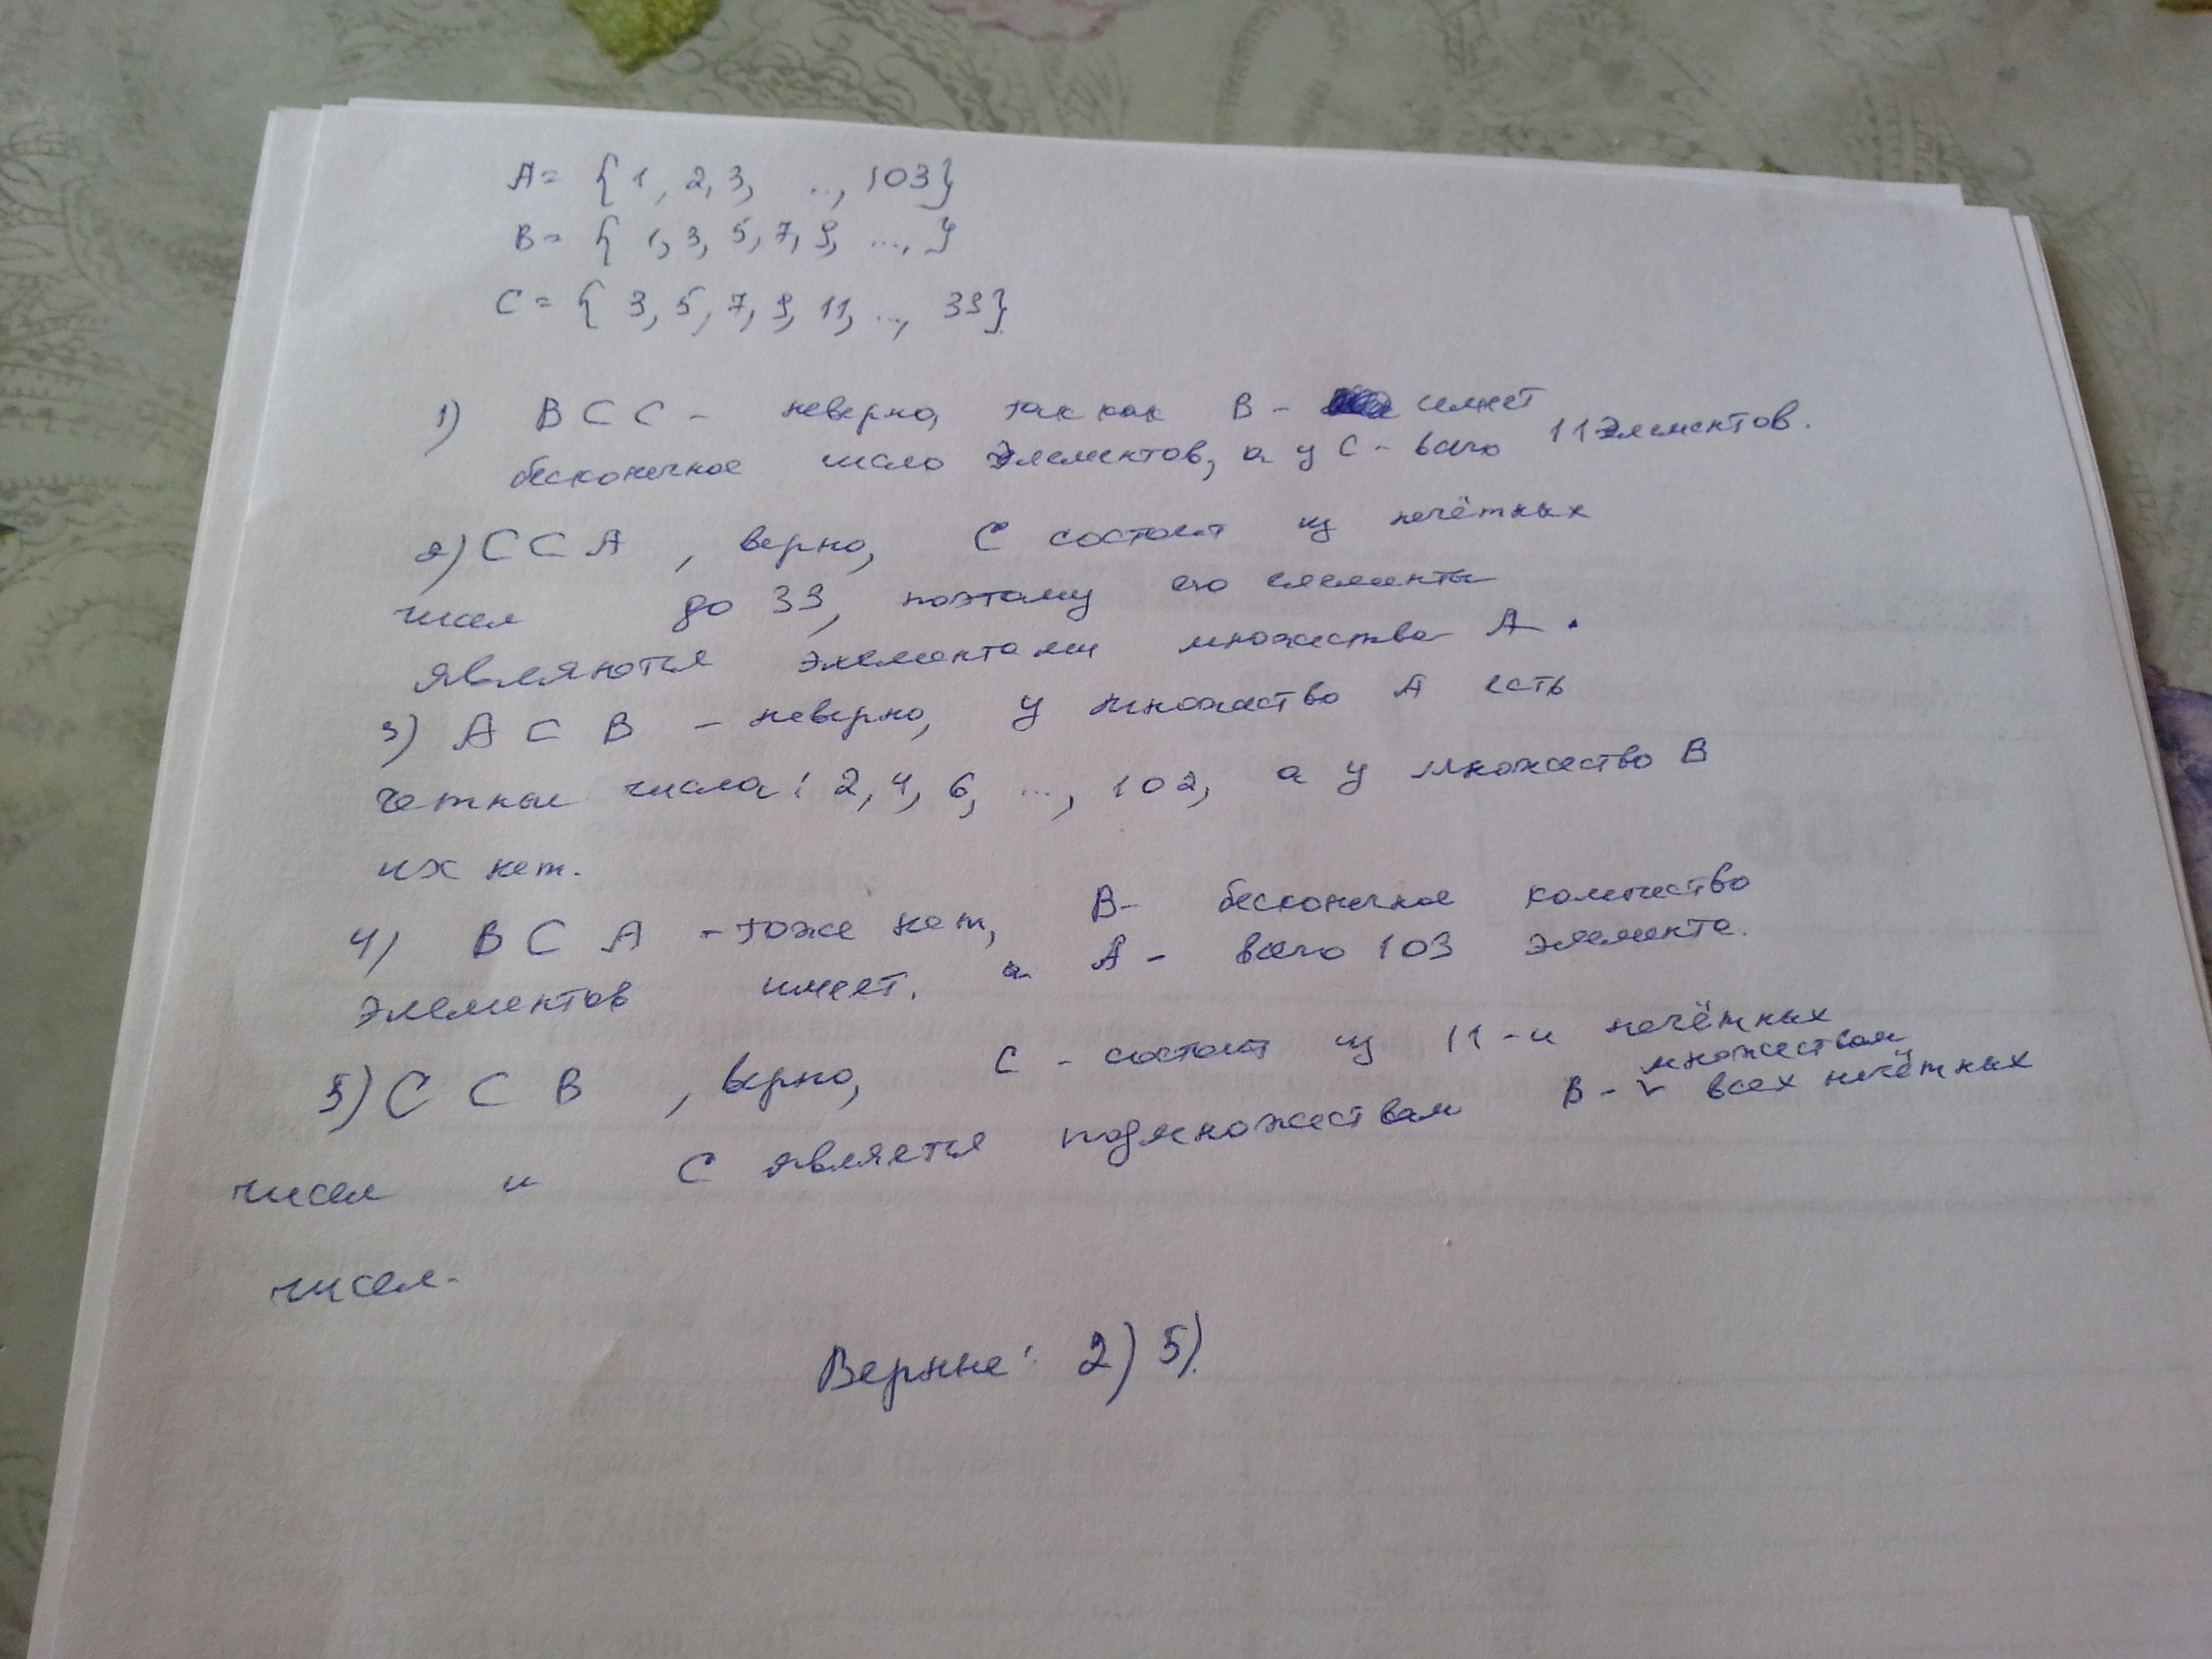 A = { 1, 2, 3, .., 103}
B = { 1, 3, 5, 7, 9, ..., }
C = { 3, 5, 7, 9, 11, ..., 39}
1) B ⊂ C - неверно, так как B - имеет
бесконечное число элементов, а у C - всего 11 элементов.
2) C ⊂ A , верно, C состоит из нечётных
чисел до 39, поэтому его элементы
являются элементами множества A.
3) A ⊂ B - неверно, у множество A есть
четные числа: 2, 4, 6, ..., 102, а у множество B
их нет.
4) B ⊂ A - тоже нет, B - бесконечное количество
элементов имеет. а A - всего 103 элемента.
5) C ⊂ B , верно, C - состоит из 11-и нечётных
чисел и C является подмножествам B - множествам всех нечётных
чисел.
Верные: 2) 5).